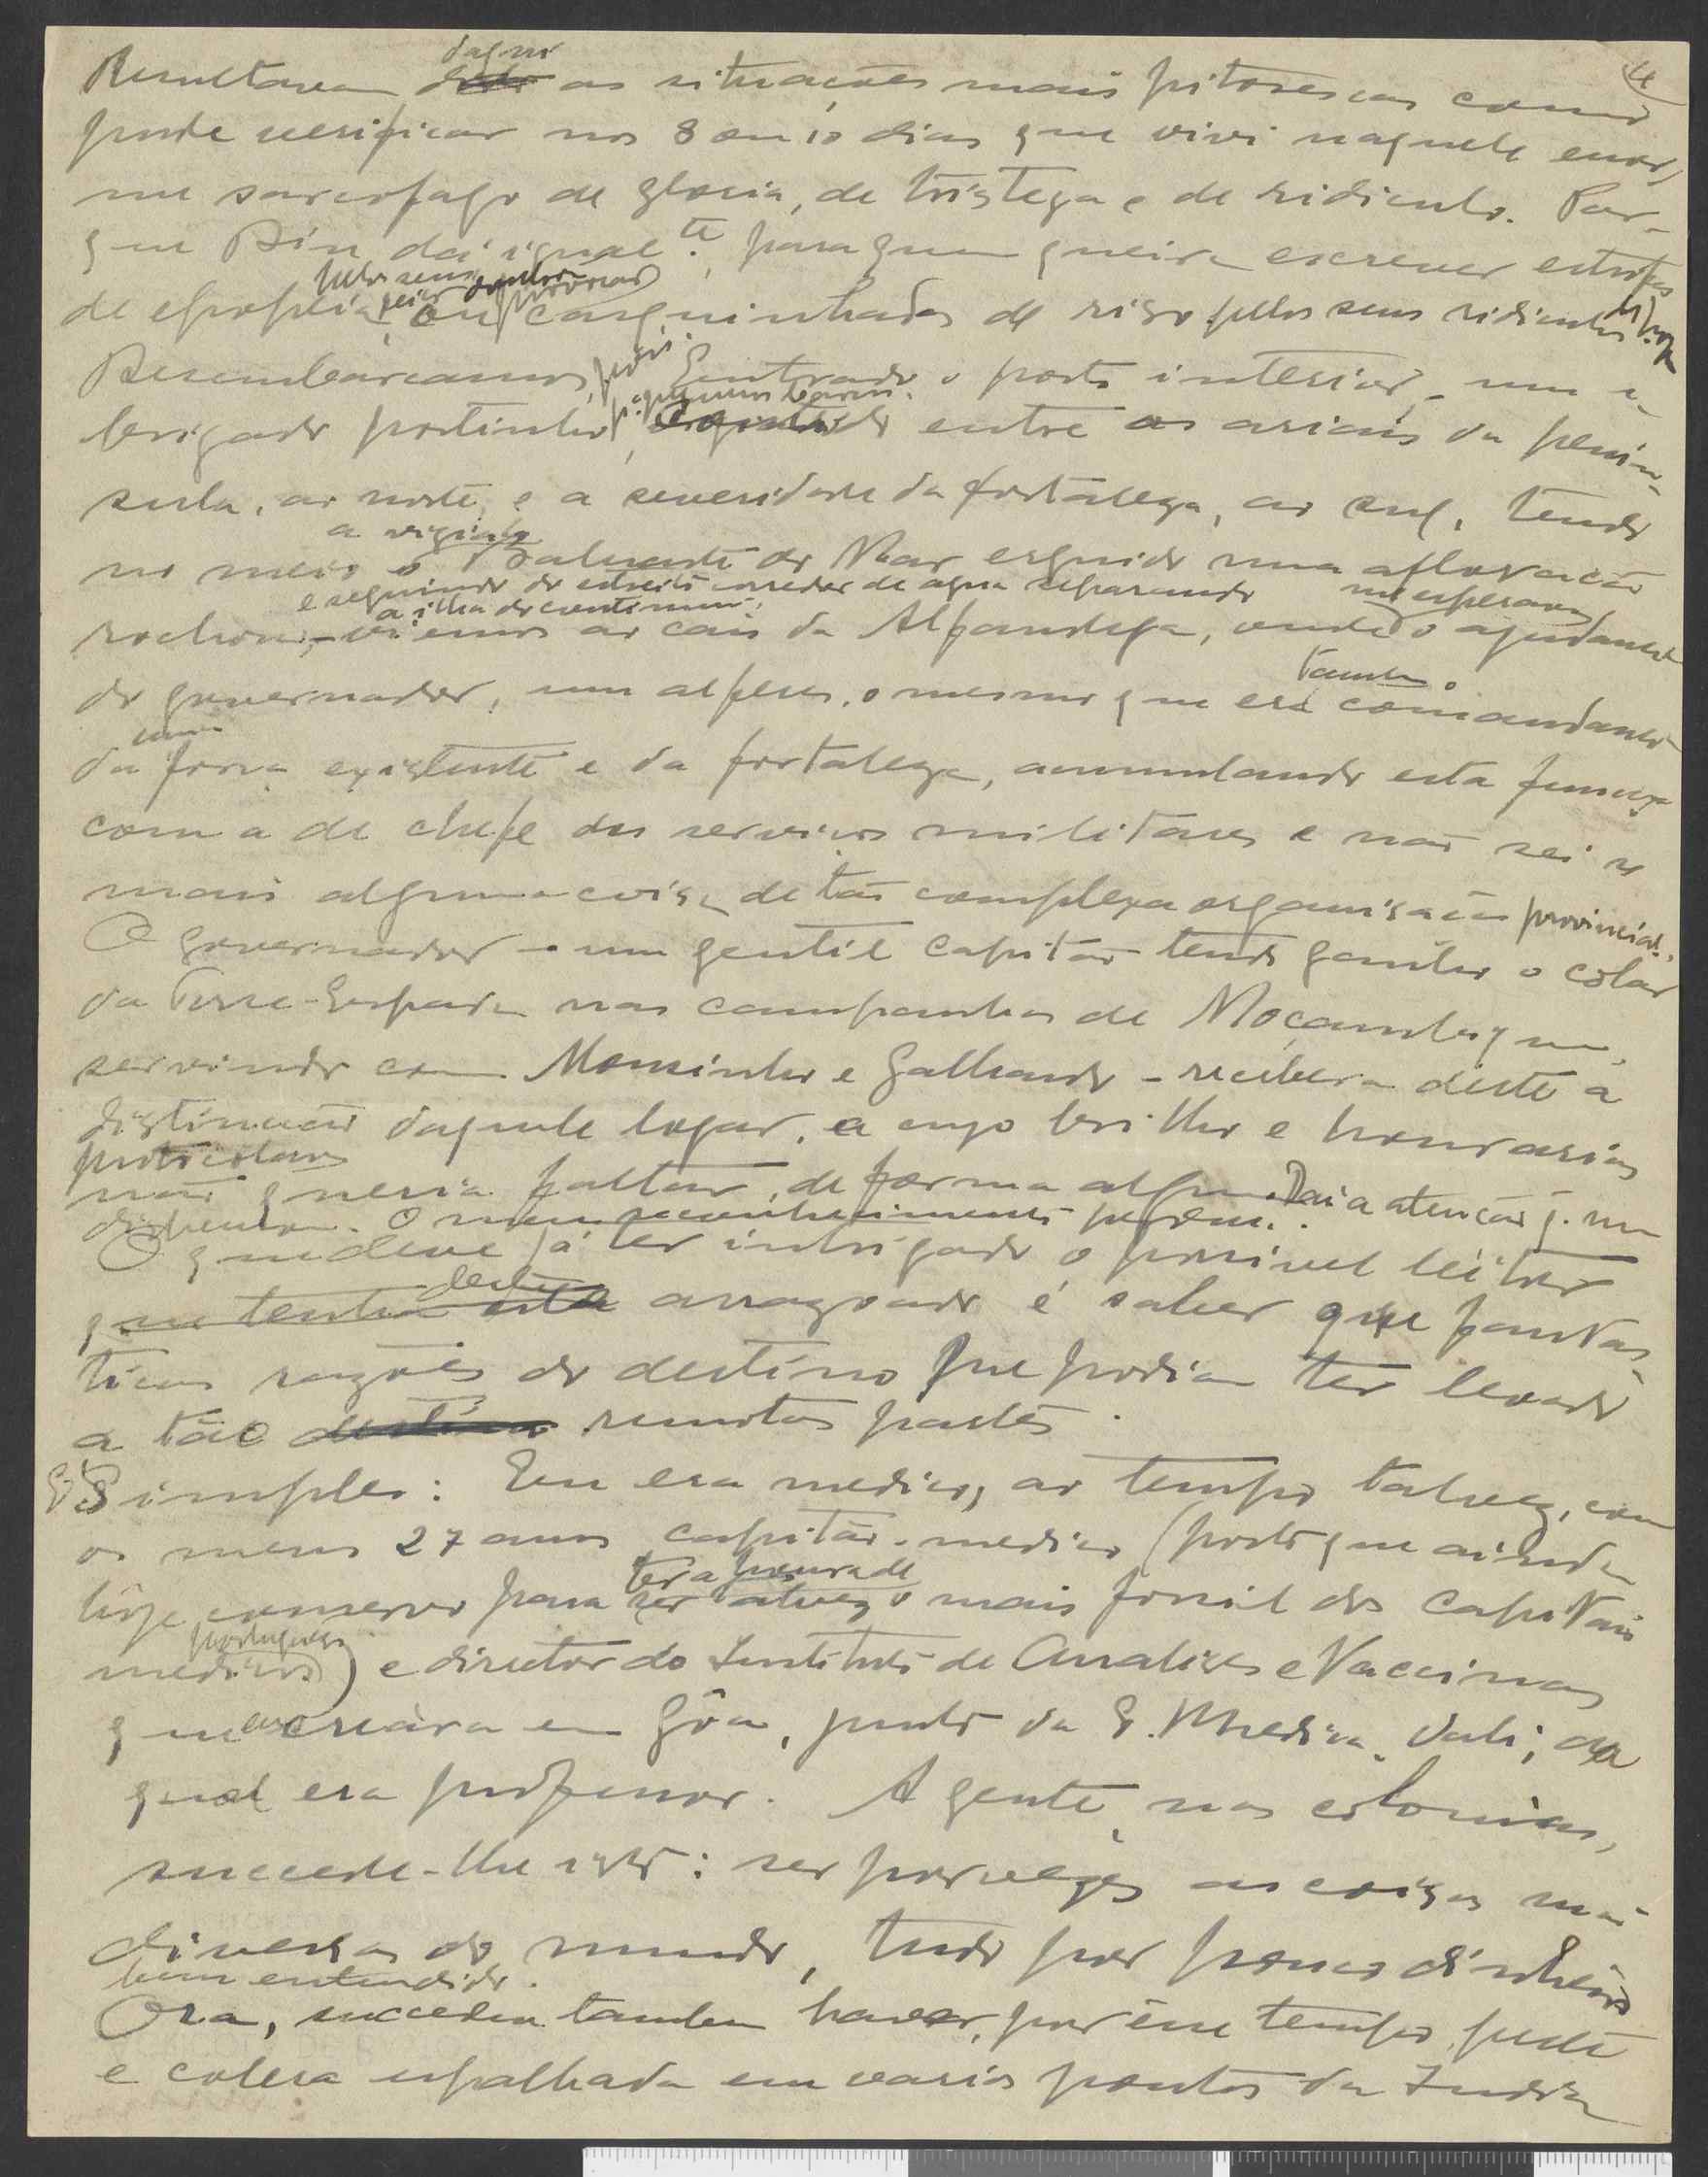 4
daqui
Resultavam as situações mais pitorescas como
pude verificar nos 8 ou 10 dias que vivi naquele enor-
me sarcofago de gloria, de tristeza e de ridiculo. Por-
que Diu dá igual.te, para quem queira escrever estrofes
pelos seus
de epopeia, ou casquinhadas de riso pelos seus ridiculos
Desembarcamos, pois. Entrado o porto interior, um a-
p.ª pequenos barcos
brigado portinho, entre os areais da penin-
sula, ao norte, e a severidade da fortaleza, ao sul, tendo
a vigia-lo
no meio o Baluarte do Mar erguido numa afloração
e seguindo do estreito corredor de agua separando
a ilha do continente,
me esperava
rochosa, viemos ao cais da Alfandega, onde o ajudante
tambem
do governador, um alferes, o mesmo que era comandante
da força existente e da fortaleza, acumulando esta função
com a de chefe dos serviços militares e não sei se
mais alguma coisa de tão complexa organisação provincial.
O governador - um gentil capitão tendo ganho o colar
da Torre-Espada nas campanhas de Moçambique,
servindo com Mousinho e Galhardo - recebera deste a
distincção daquele logar, a cujo brilho e honrarias
protocolares
não queria faltar, de forma alguma. Daí a atenção q. me
dispensou. O meu reconhecimento porem.
O que deve já ter intrigado o possivel leitor
deste
que tenha esta arrazoado é saber que fantas-
ticas razões do destino me podiam ter levado
a tão remotas partes.
É simples: Eu era medico, ao tempo talvez, com
os meus 27 anos, capitão-medico (posto que ainda
ter a honra de
hoje conservo para ser talvez o mais fossil dos capitães
portugueses
medicos) e director do Instituto de Analises e Vaccinas
que eu creára em Gôa, junto da E. Medica. dali, da
qual era professor. A gente, nas colonias,
succede-lhe isto: ser por vezes as coisas mais
diversas do mundo, tudo por pouco dinheiro
bem entendido.
Ora, succedeu tambem haver, por êsse tempo, peste
e colera espalhada em varios pontos da India